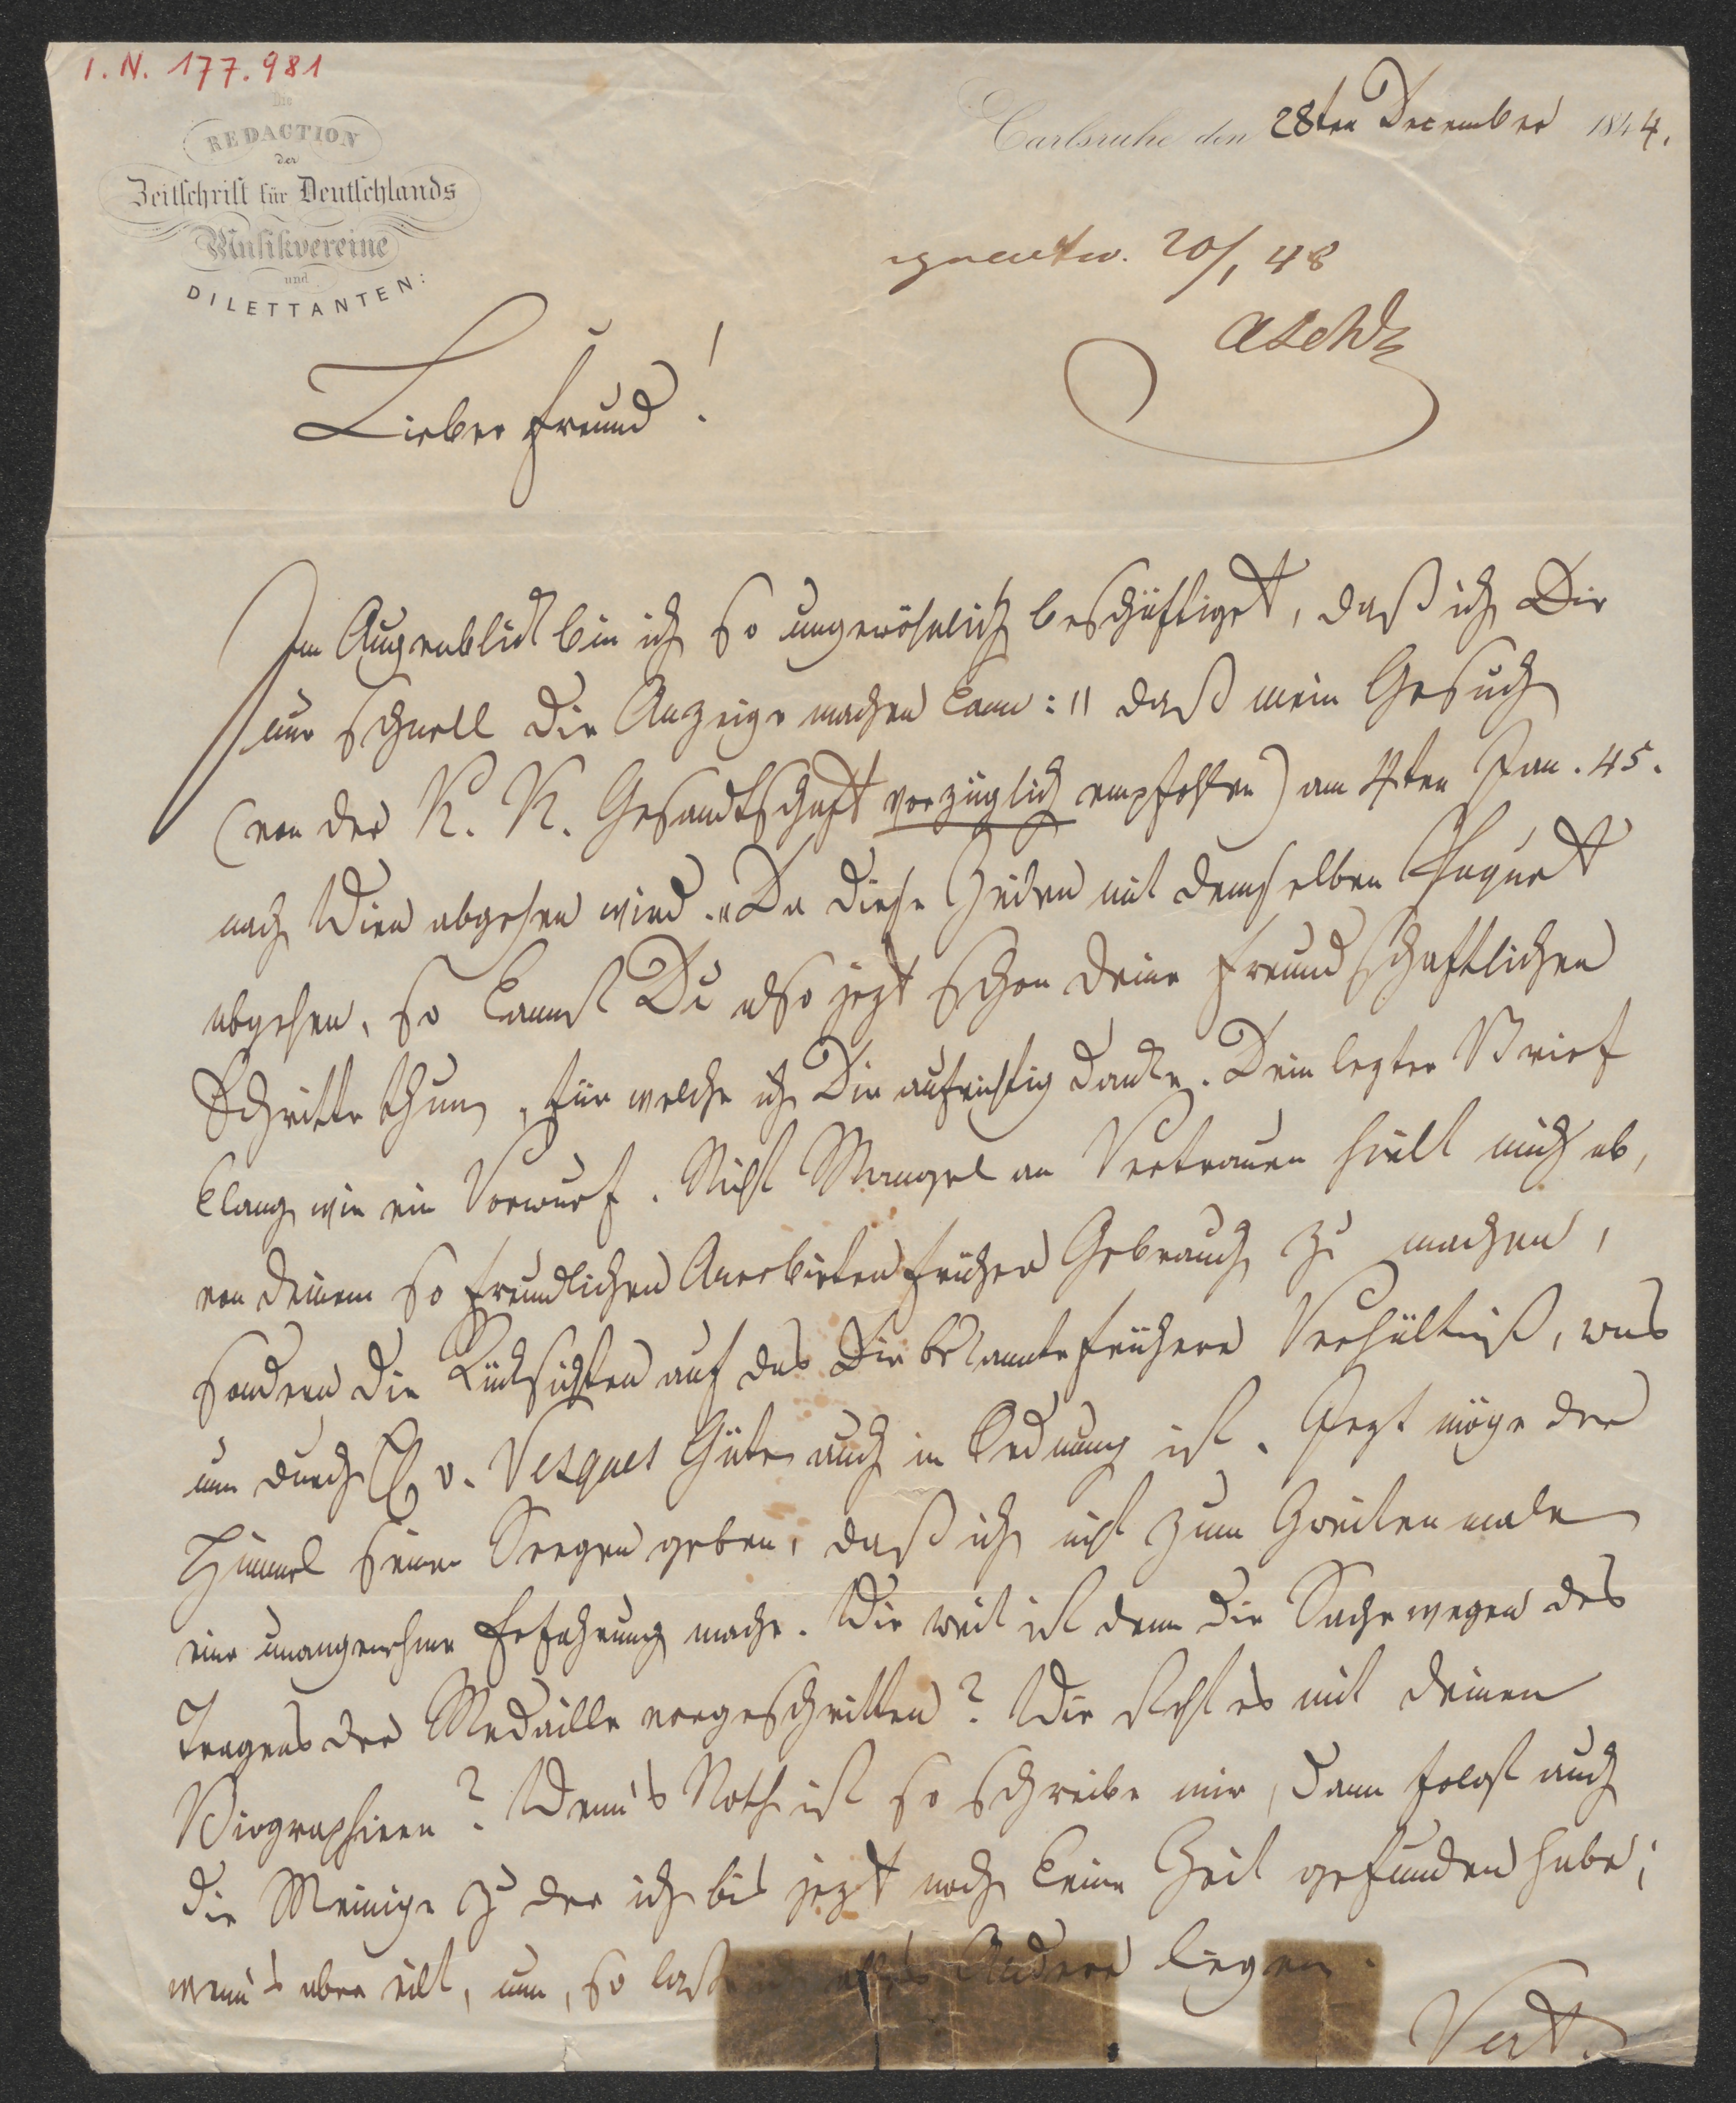 I. N. 177.981
Die
REDACTION
der
Zeitschrift für Deutschlands
Musikvereine
und
DILETTANTEN:
Carlsruhe den 28ten December 1844.
20/1 48
Lieber Freund!
Im Augenblick bin ich so ungewöhnlich beschäftiget, daß ich Dir
nur schnell die Anzeige machen kann: „daß mein Gesuch
(von der K. K. Gesandtschaft vorzüglich empfohlen) am 4ten Jan. 45.
nach Wien abgehen wird." Da diese Zeilen mit demselben Paquet
abgehen, so kannst Du also jezt schon deine freundschaftlichen
Schritte thun, für welche ich Dir aufrichtig danke. Dein lezter Brief
klang wie ein Vorwurf. Nicht Mangel an Vertrauen hielt mich ab,
von deinem so freundlichen Anerbieten früher Gebrauch zu machen,
sondern die Rücksichten auf das Dir bekannte frühere Verhältniß, was
nun durch H v. Vesques Güte auch in Ordnung ist. Jezt möge der
Himmel seinen Seegen geben, daß ich nicht zum Zweitenmale
eine unangenehme Erfahrung mache. Wie weit ist denn die Sache wegen des
Tragens der Medaille vorgeschritten? Wie steht es mit deinen
Biographieen? Wenn's Noth ist so schreibe mir, dann folgt auch
die Meinige zu der ich bis jezt noch keine Zeit gefunden habe;
wenn's aber eilt, nun, so lasse ich alles Andere liegen.
Vert.